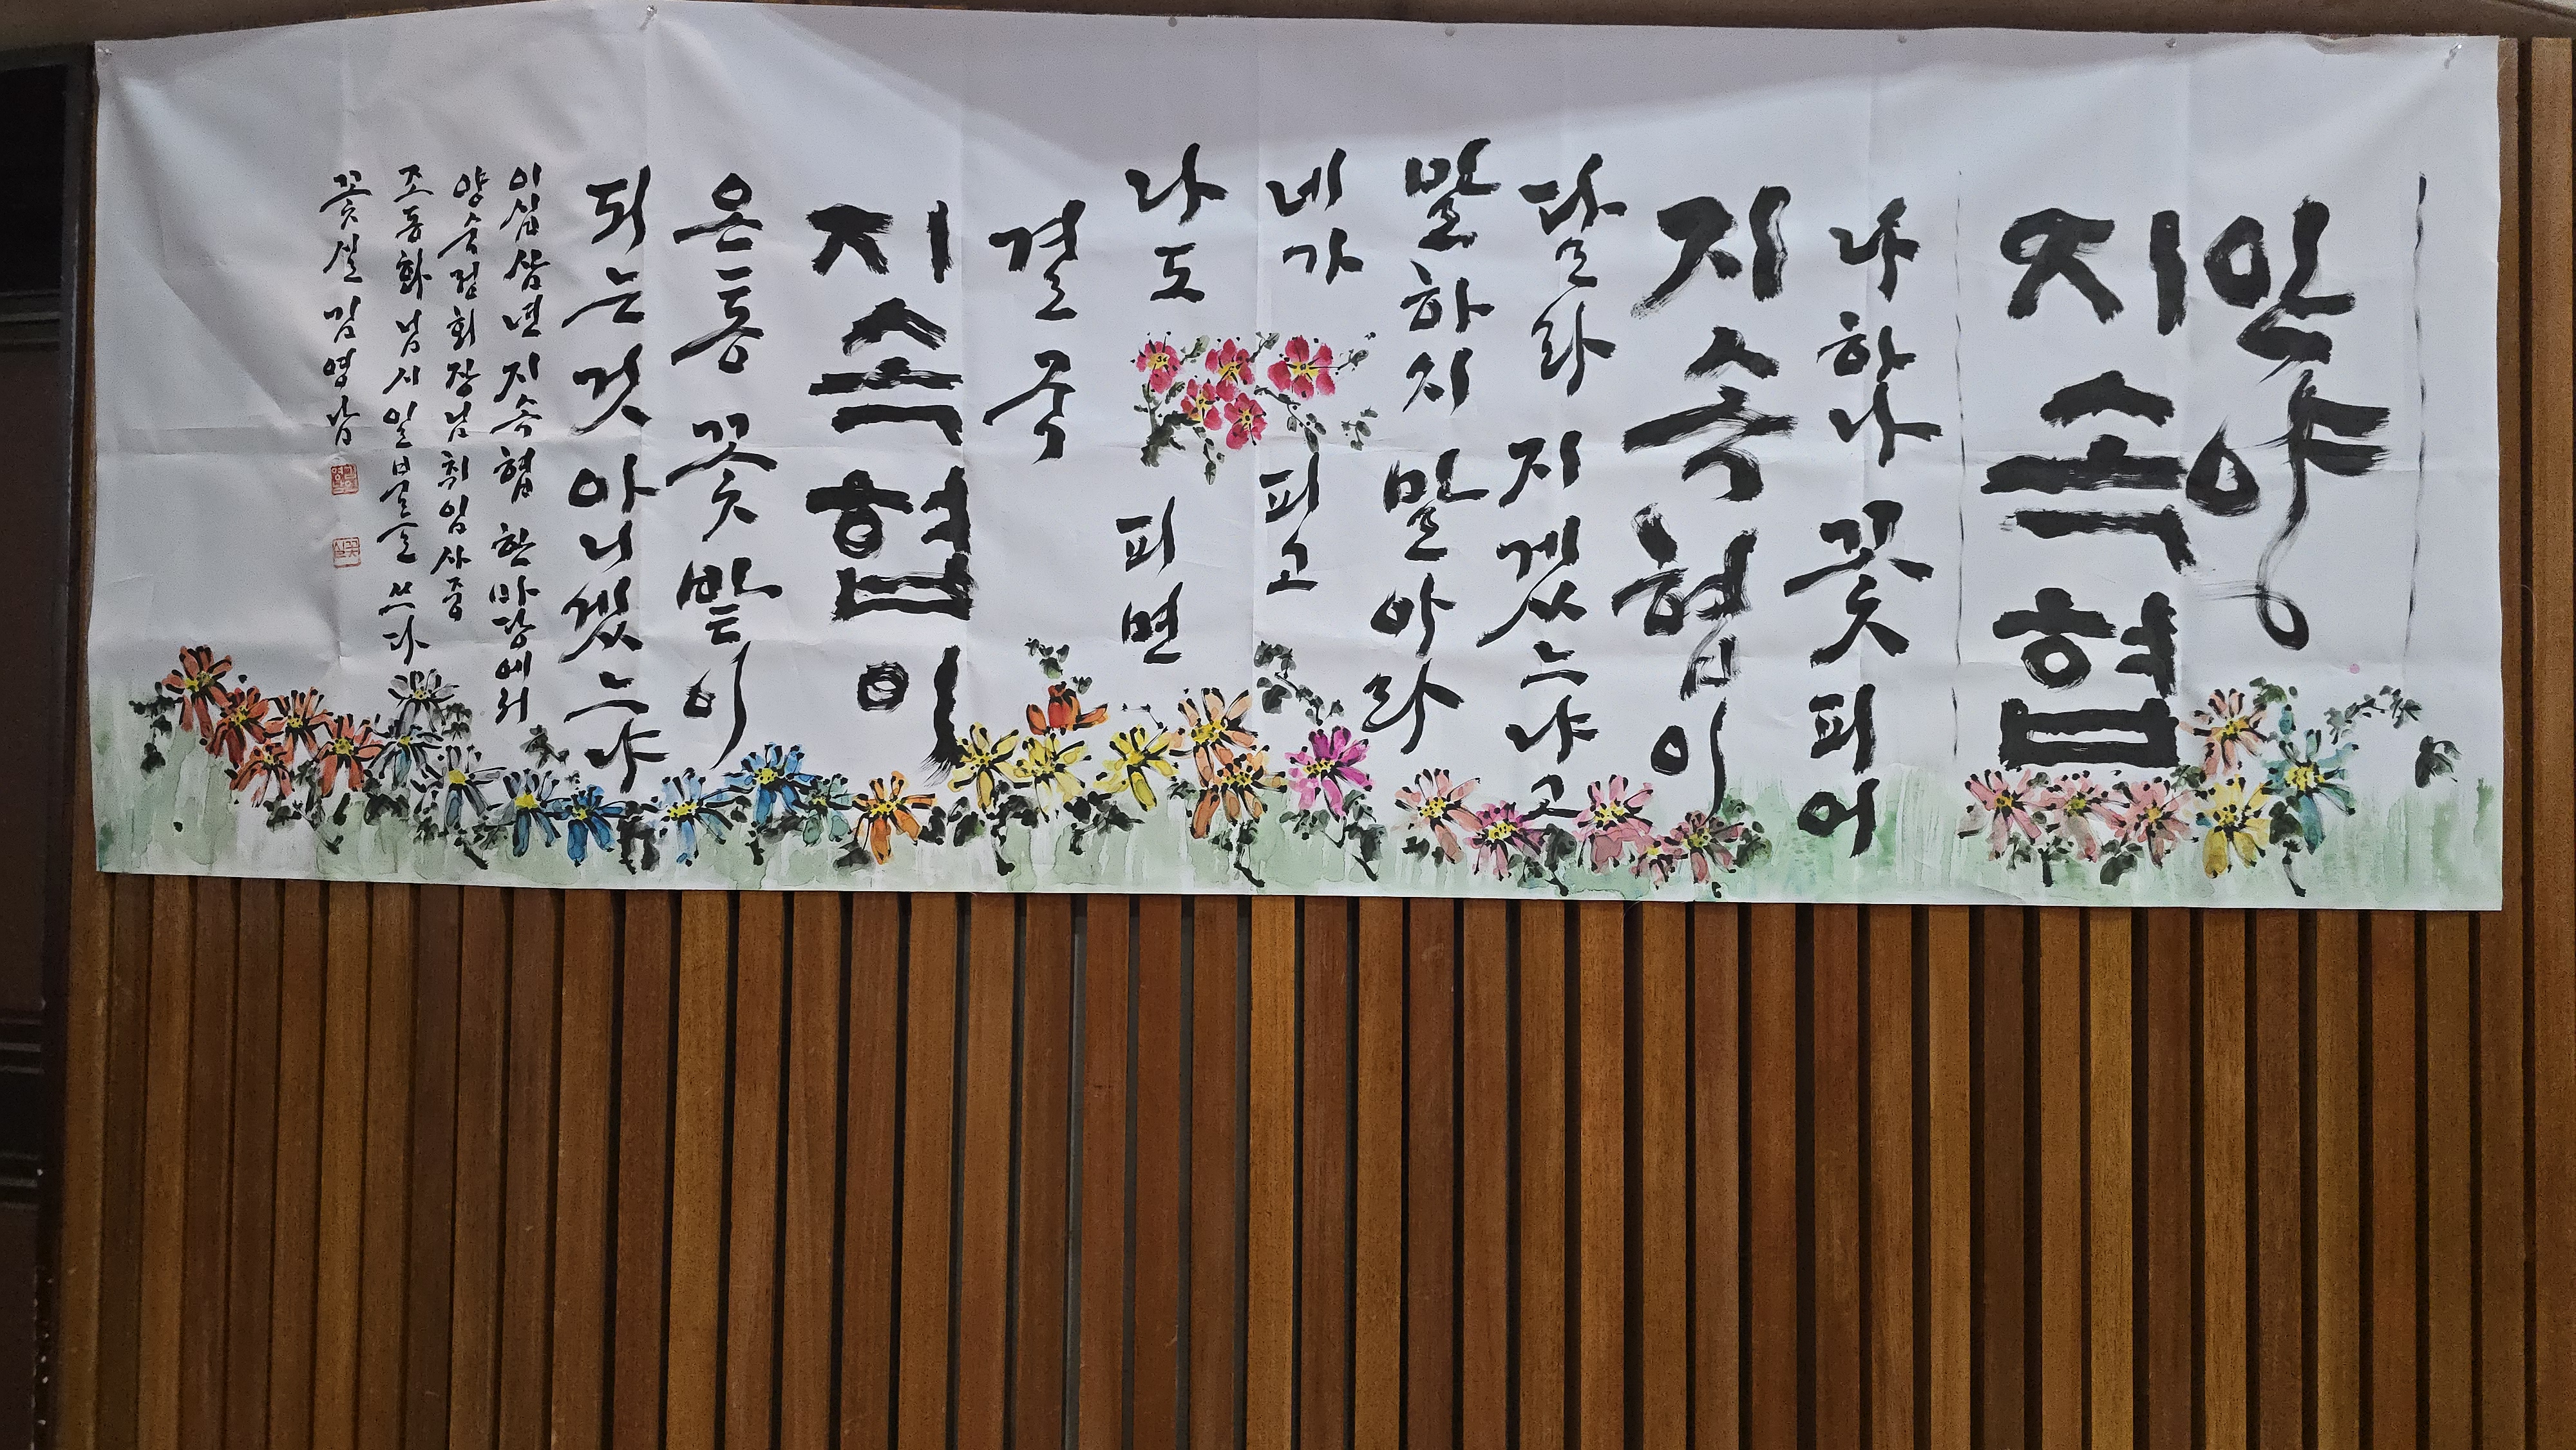 안양
지속협
나 하나 꽃 피어
지속협이
달라지겠느냐고
말하지 말아라
네가 피고
나도 피면
결국
지속협이
온통 꽃밭이
되는 것 아니겠느냐
이십삼년 지속협 한마당에서
양숙정 회장님 취임사 중
조동화님 시 일부분을 쓰다
꽃실 김영남